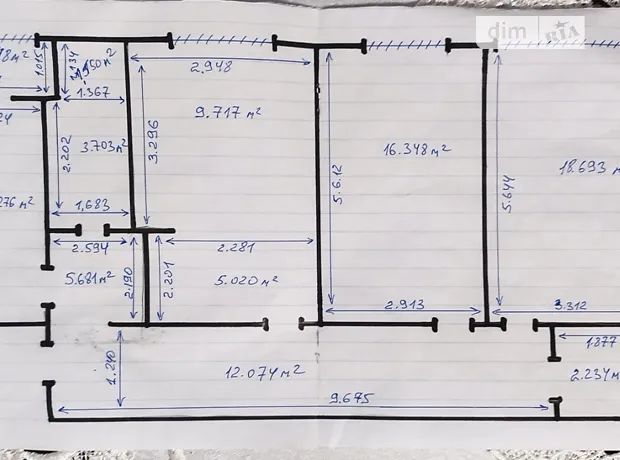 dim RIA
1.015
1.134
2.948
1.367
9.717 м²
2.202
3.703 м²
3.296
16.348 м²
5.612
5.644
18.693 м
276 м²
1,683
2.594
2.281
5.681 м²
2.190
2.201
5.020 м²
2.913
3.312
1.240
12.074 м²
1.877
2.234 м
9.675